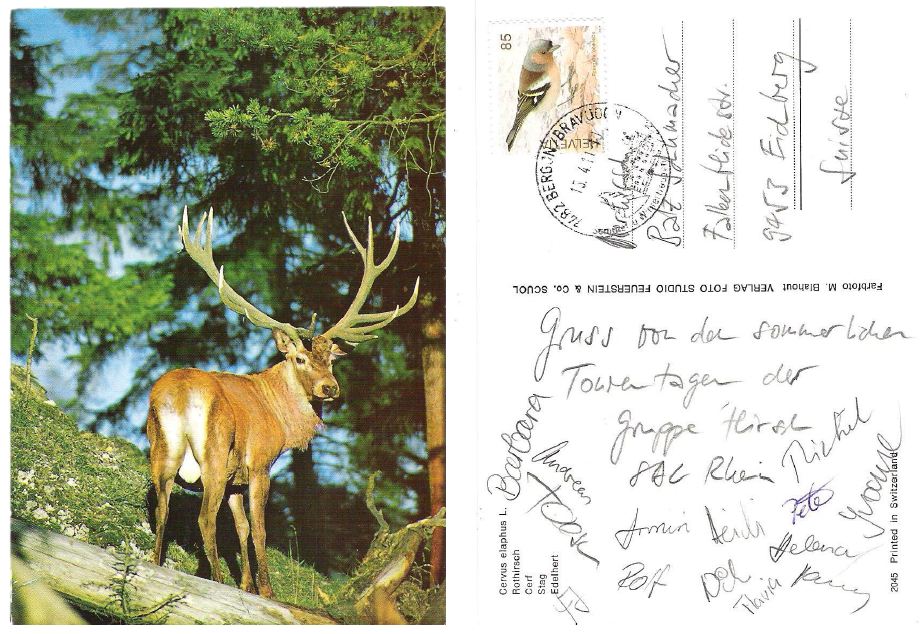 85
HELVETIA
7482 BERGÜN/BRAVUOGN
Falkenbüelstr.
Suisse
Farbfoto M. Blahout VERLAG FOTO STUDIO FEUERSTEIN & Co. SCUOL
Gruss von den sommerlichen
Tourentagen der
Gruppe Hirsch
SAC Rhein
Barbara
Andreas
Michel
Yvonne
Peter
Armin Heidi
Helena
Rolf
Flavia
Cervus elaphus L.
Rothirsch
Cerf
Stag
Edelhert
2045 Printed in Switzerland